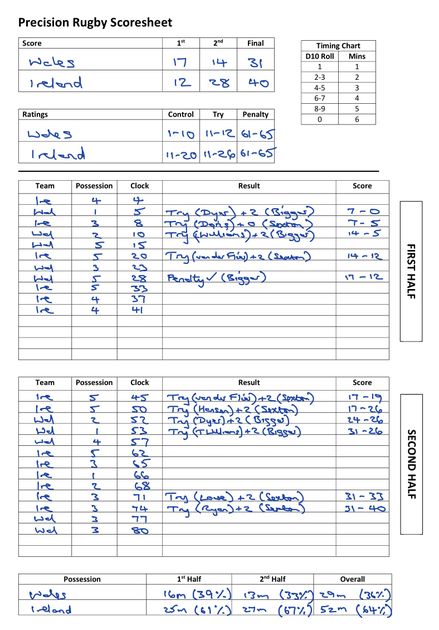 Precision Rugby Scoresheet
Score 1st 2nd Final
Wales 17 14 31
Ireland 12 28 40
Timing Chart
D10 Roll Mins
1 1
2-3 2
4-5 3
6-7 4
8-9 5
0 6
Ratings Control Try Penalty
Wales 1-10 11-12 61-65
Ireland 11-20 11-26 61-65
FIRST HALF
Team Possession Clock Result Score
Ire 4 4
Wal 1 5 Try (Dyer) + 2 (Biggar) 7 - 0
Ire 3 8 Try + 0 (Sexton) 7 - 5
Wal 2 10 Try (Williams) + 2 (Biggar) 14 - 5
Wal 5 15
Ire 5 20 Try (van der Flier) + 2 (Sexton) 14 - 12
Wal 3 23
Wal 5 28 Penalty ✓ (Biggar) 17 - 12
Ire 5 33
Ire 4 37
Ire 4 41
SECOND HALF
Team Possession Clock Result Score
Ire 5 45 Try (van der Flier) + 2 (Sexton) 17 - 19
Ire 5 50 Try (Hansen) + 2 (Sexton) 17 - 26
Wal 2 52 Try (Dyer) + 2 (Biggar) 24 - 26
Wal 1 53 Try (T Williams) + 2 (Biggar) 31 - 26
Wal 4 57
Ire 5 62
Ire 3 65
Ire 1 66
Ire 2 68
Ire 3 71 Try (Lowe) + 2 (Sexton) 31 - 33
Ire 3 74 Try (Ryan) + 2 (Sexton) 31 - 40
Wal 3 77
Wal 3 80
Possession 1st Half 2nd Half Overall
Wales 16m (39%) 13m (33%) 29m (36%)
Ireland 25m (61%) 27m (67%) 52m (64%)